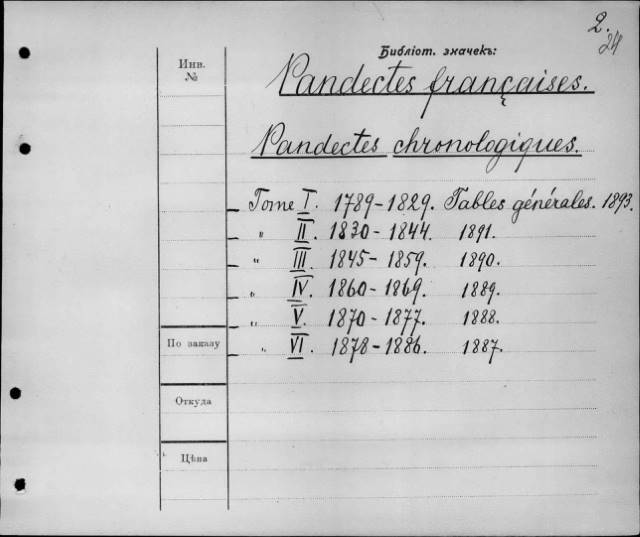 2.
24
Библiот. значекъ:
Инв.
№
Pandectes françaises.
Pandectes chronologiques.
Tome I. 1789-1829. Tables générales. 1893.
" II. 1830-1844. 1891.
" III. 1845-1859. 1890.
" IV. 1860-1869. 1889.
" V. 1870-1877. 1888.
" VI. 1878-1886. 1887.
По заказу
Откуда
Цѣна